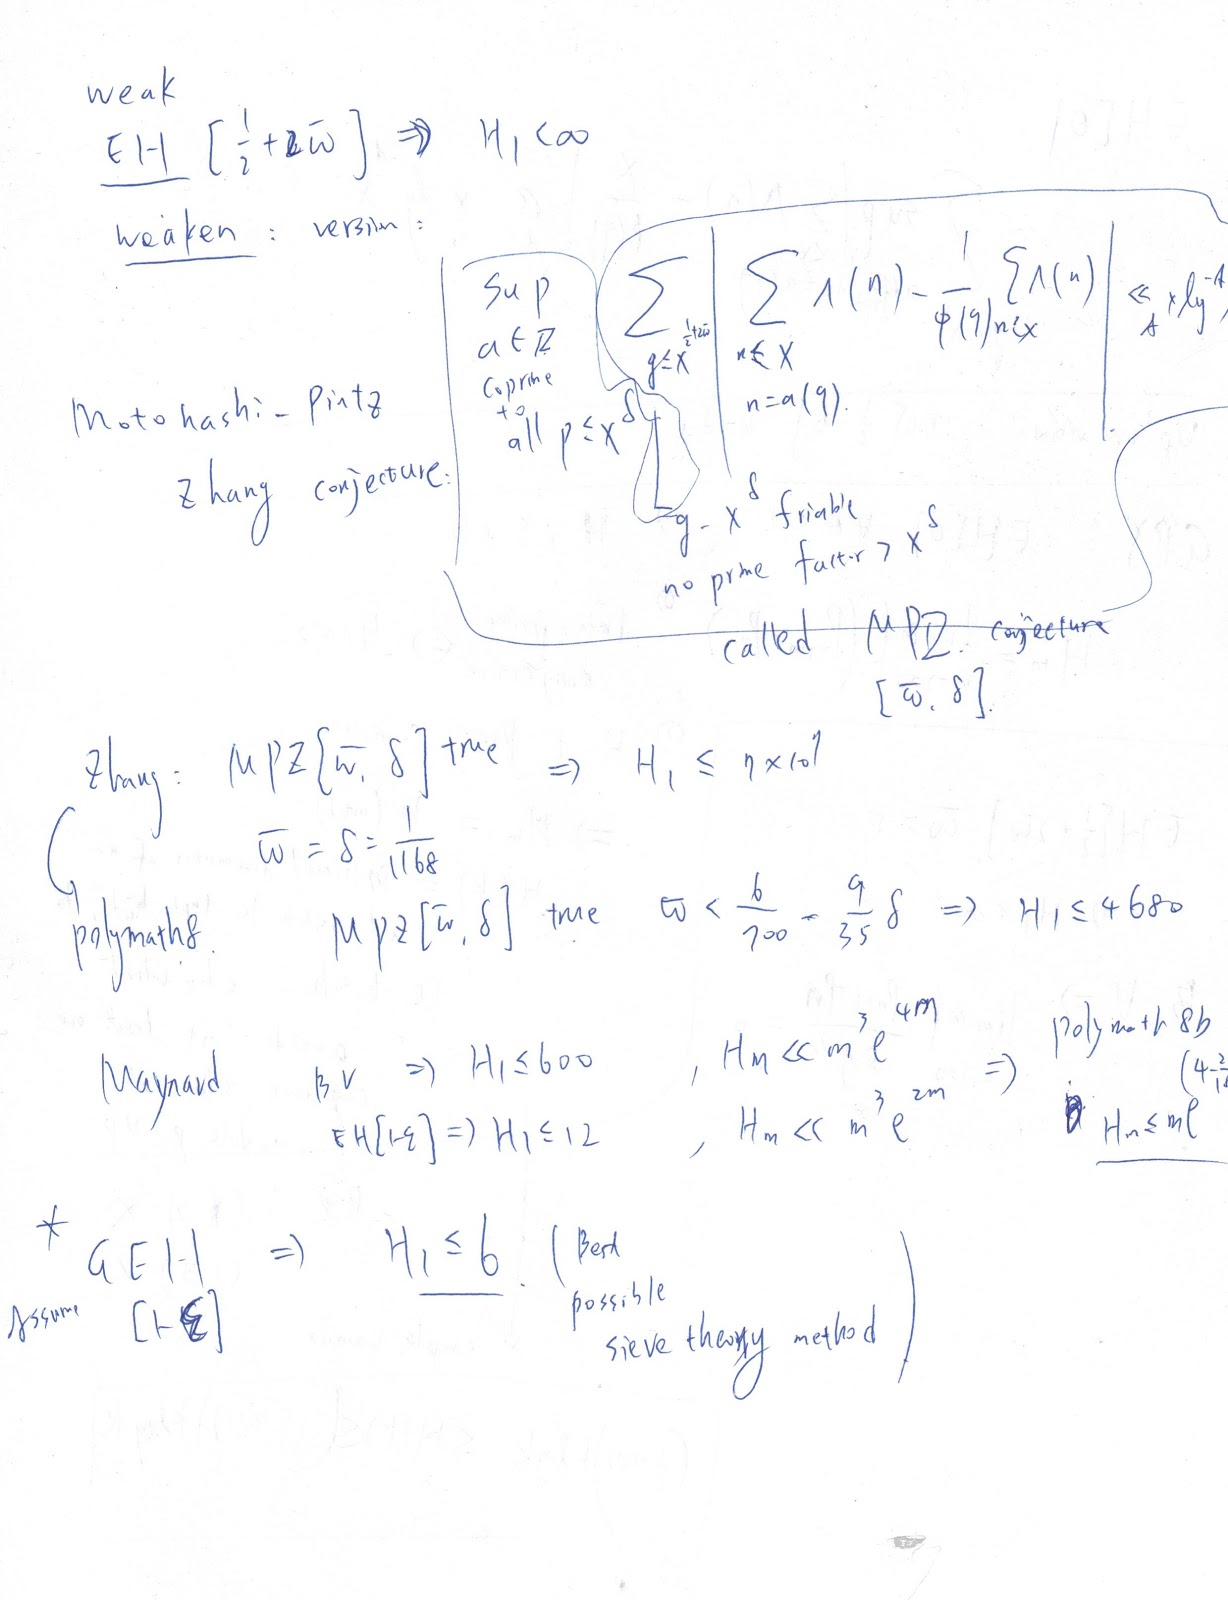 weak
EH [1/2 + 2ϖ] ⇒ H₁ < ∞
weaken : version :
Motohashi - Pintz
Zhang conjecture:
Sup a ∈ ℤ coprime to all p ≤ x^δ
∑ q ≤ x^{1/2+2ϖ} | ∑ n ≤ x n = a (q). Λ(n) - 1/φ(q) ∑ n ≤ x Λ(n) | ≪_A x log^{-A}
q - x^δ friable
no prime factor > x^δ
called MPZ. conjecture
[ϖ, δ].
Zhang: MPZ[ϖ, δ] true ⇒ H₁ ≤ 7 × 10⁷
ϖ = δ = 1/1168
polymath8. MPZ[ϖ, δ] true ϖ < 6/700 - 9/35 δ ⇒ H₁ ≤ 4680
Maynard BV ⇒ H₁ ≤ 600 , Hm ≪ m³e^{4m} ⇒ polymath 8b
EH[1-ε] ⇒ H₁ ≤ 12 , Hm ≪ m³e^{2m} Hm ≤ me
* GEH ⇒ H₁ ≤ 6. (Best
Assume [1-ε] possible
sieve theory method)